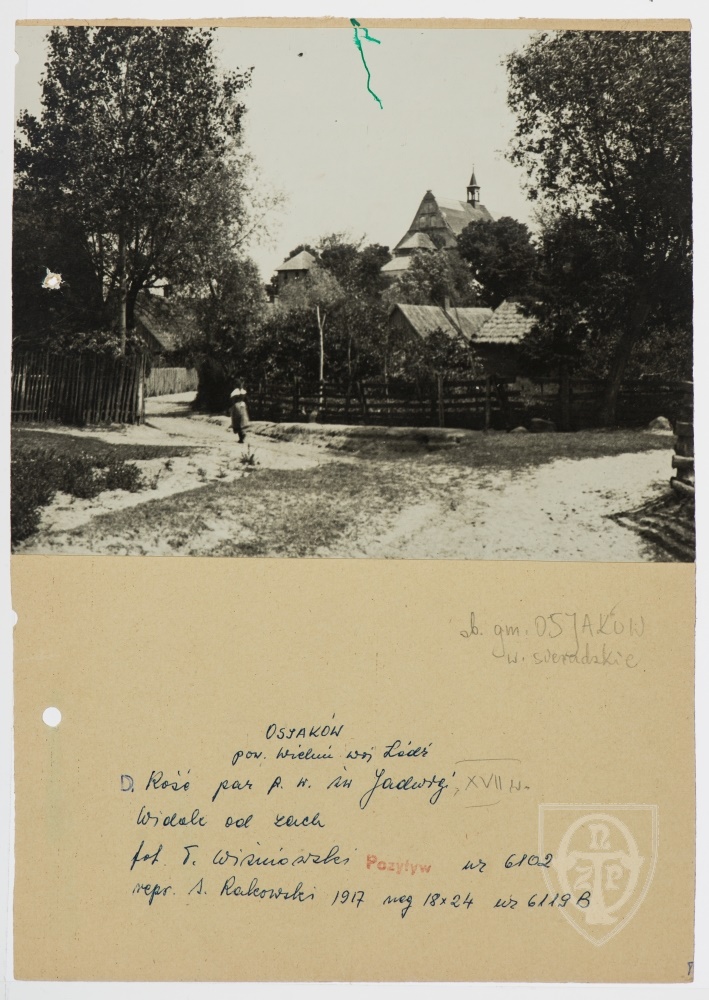 ob. gm. OSJAKÓW
w. sieradzkie
OSJAKÓW
pow. Wieluń woj Łódź
D. Kość par p. w. św Jadwigi, XVII w.
Widok od zach
fot T. Wiśniowski Pozytyw nr 6102
repr. S. Rakowski 1917 neg 18x24 nr 6119 B